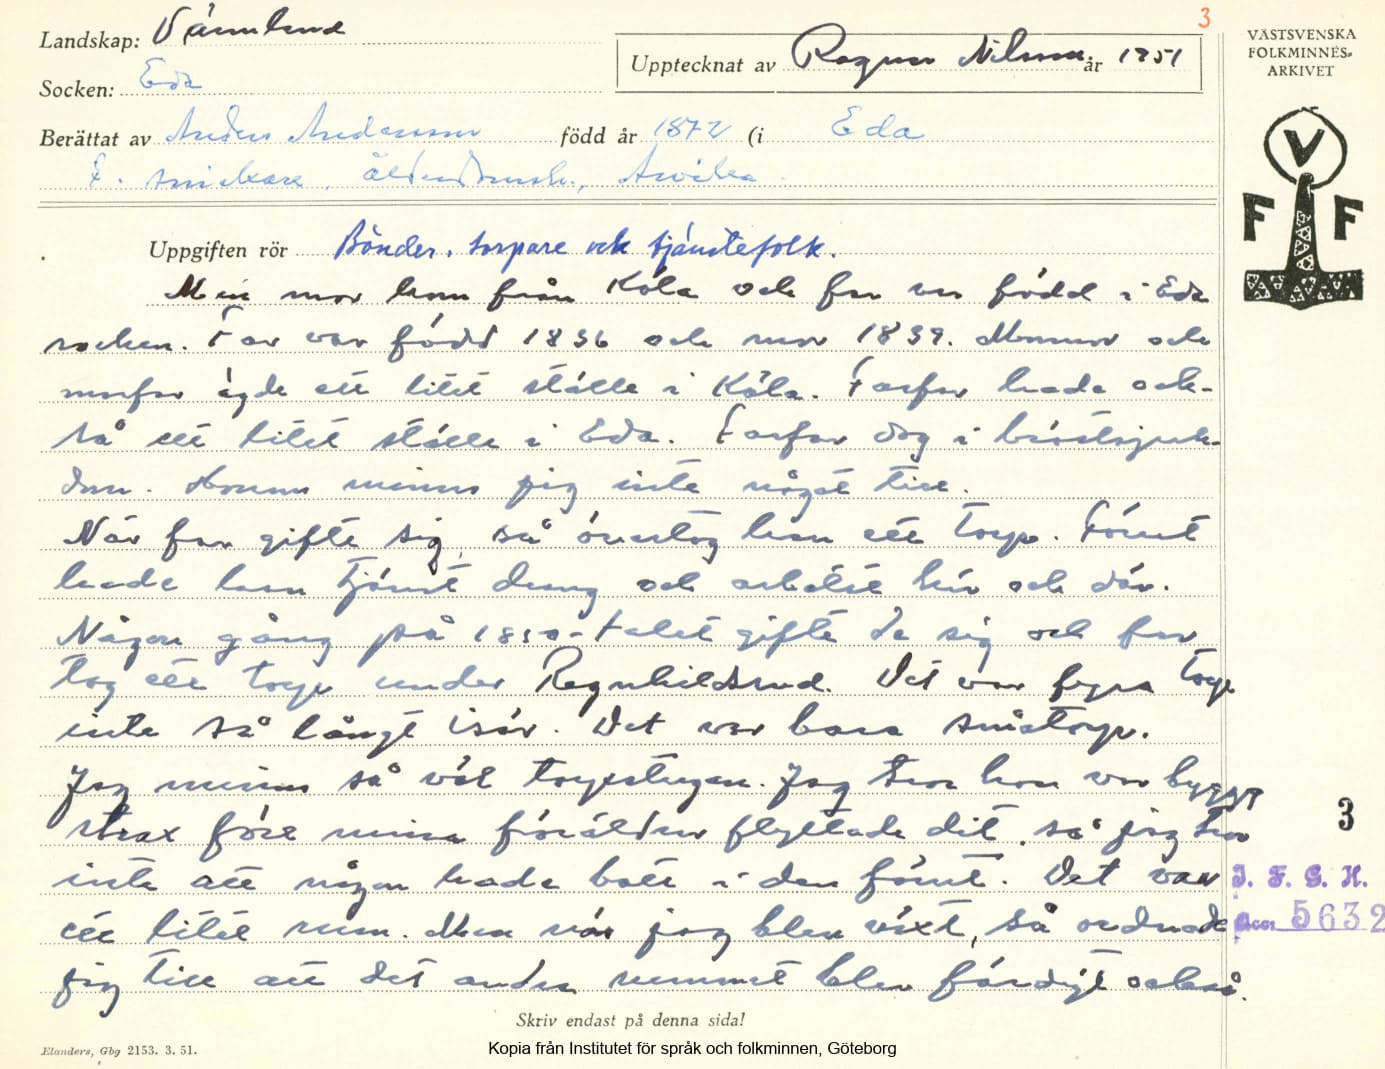 3
Landskap: Värmland
Upptecknat av Ragnar Nilsson år 1951
Socken: Eda
Berättat av Anders Andersson född år 1872 (i Eda
f. snickare, ålderdomsh., Arvika
VÄSTSVENSKA
FOLKMINNES-
ARKIVET
V
F F
Uppgiften rör Bönder, torpare och tjänstefolk.
Min mor kom från Köla och far var född i Eda
socken. Far var född 1836 och mor 1839. Mormor och
morfar ägde ett litet ställe i Köla. Farfar hade ock-
så ett litet ställe i Eda. Farfar dog i bröstsjuk-
dom. Honom minns jag inte något till.
När far gifte sig, så övertog han ett torp. Förut
hade han tjänt dräng och arbetat här och där.
Någon gång på 1850-talet gifte de sig och far
tog ett torp under Ragnhildsrud. Det var fyra torp
inte så långt isär. Det var bara småtorp.
Jag minns så väl torpstugan. Jag tror hon var byggt
strax före mina föräldrar flyttade dit, så jag tror
inte att någon hade bott i den förut. Det var
ett litet rum. Men när jag blev växt, så ordnade
jag till att det andra rummet blev färdigt också.
3
I. F. G. H.
Acc. 5632
Skriv endast på denna sida!
Elanders, Gbg 2153. 3. 51.
Kopia från Institutet för språk och folkminnen, Göteborg